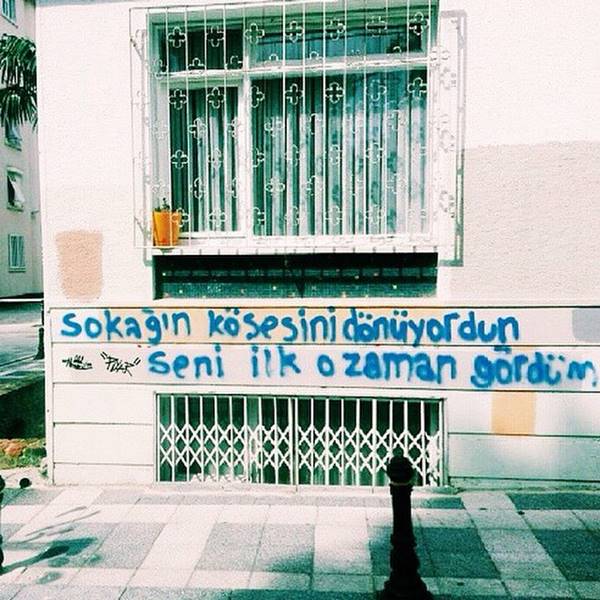 sokağın kösesini dönüyordun
seni ilk o zaman gördüm